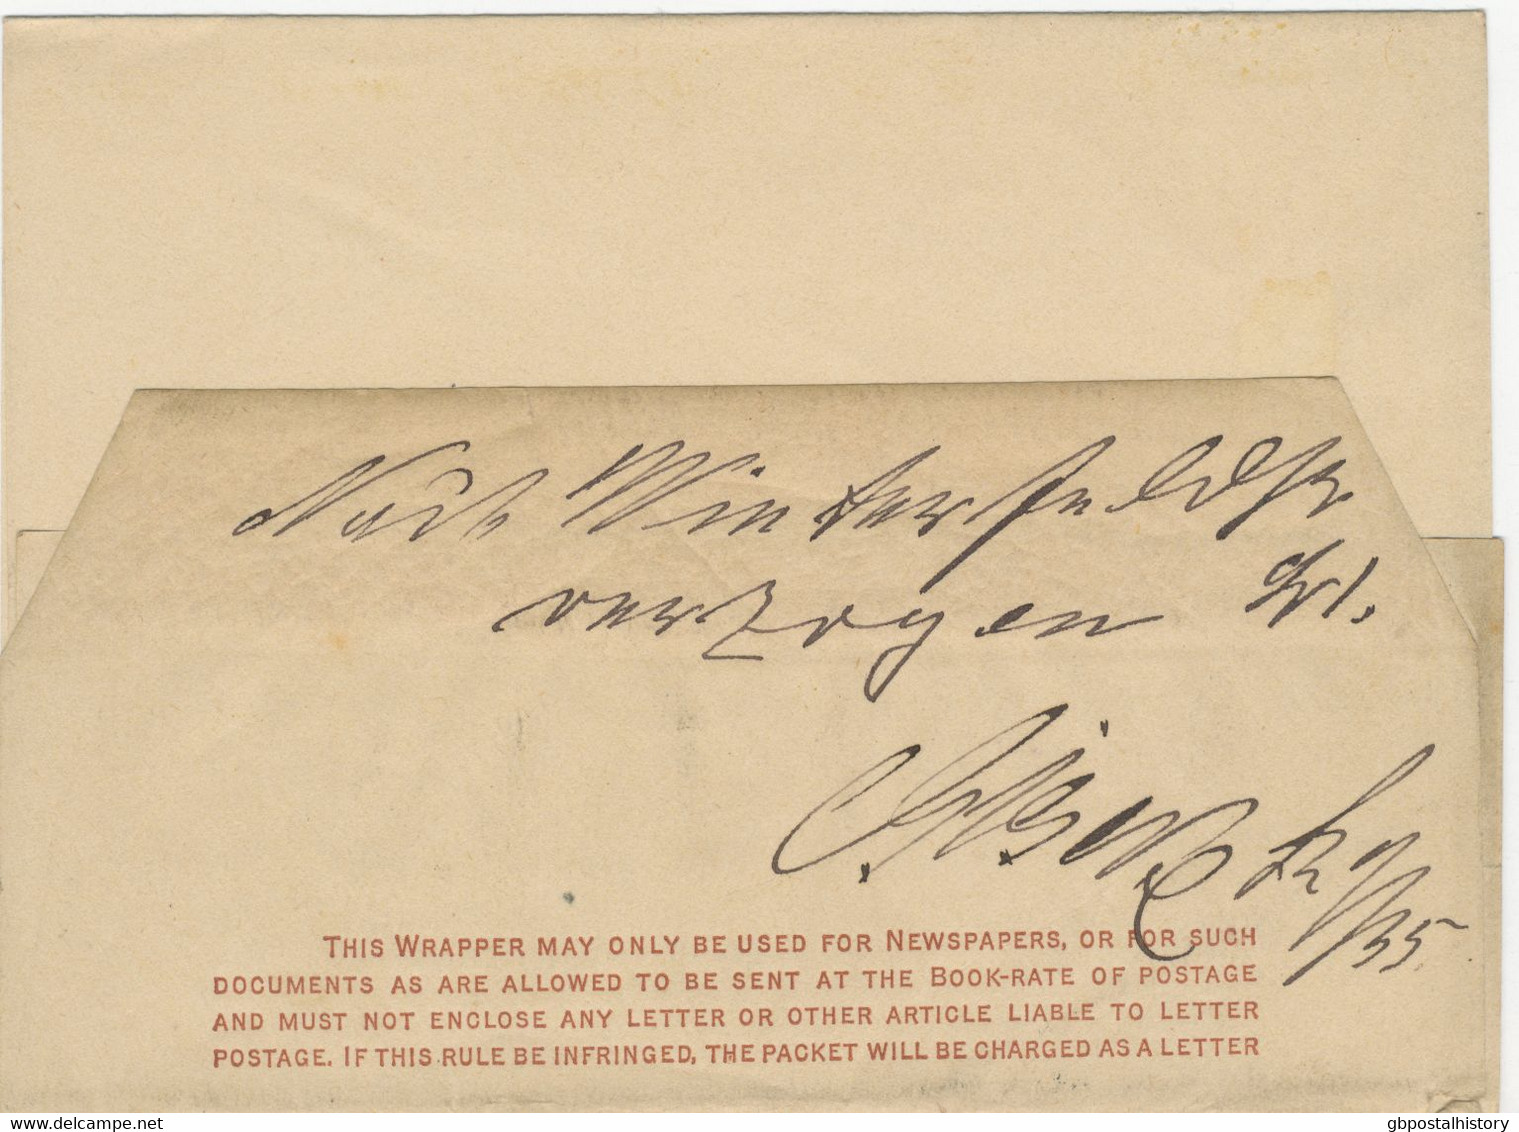 Nach Winterfeldstr
verzogen
THIS WRAPPER MAY ONLY BE USED FOR NEWSPAPERS, OR FOR SUCH
DOCUMENTS AS ARE ALLOWED TO BE SENT AT THE BOOK-RATE OF POSTAGE
AND MUST NOT ENCLOSE ANY LETTER OR OTHER ARTICLE LIABLE TO LETTER
POSTAGE. IF THIS RULE BE INFRINGED, THE PACKET WILL BE CHARGED AS A LETTER
www.delcampe.net
gbpostalhistory